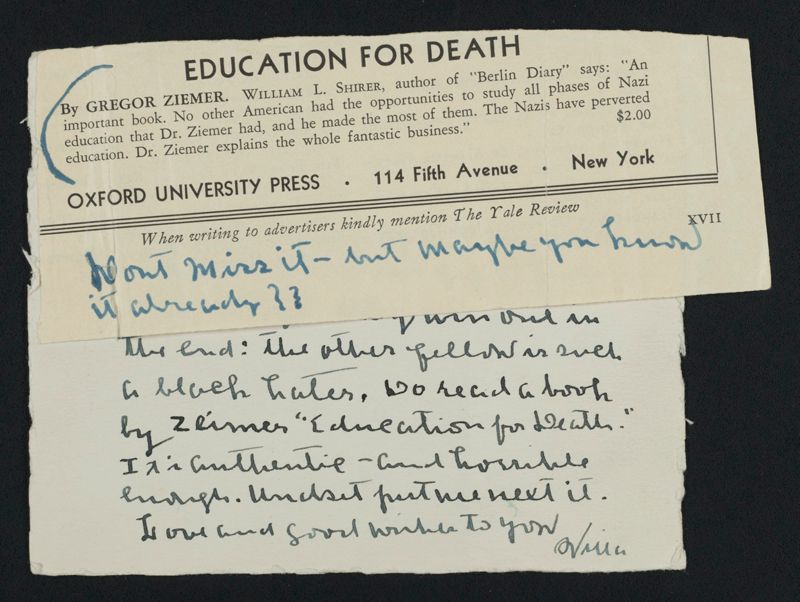 EDUCATION FOR DEATH
By GREGOR ZIEMER. WILLIAM L. SHIRER, author of "Berlin Diary" says: "An
important book. No other American had the opportunities to study all phases of Nazi
education that Dr. Ziemer had, and he made the most of them. The Nazis have perverted
education. Dr. Ziemer explains the whole fantastic business." $2.00
OXFORD UNIVERSITY PRESS · 114 Fifth Avenue · New York
When writing to advertisers kindly mention The Yale Review
XVII
Dont Miss it – but maybe you know
it already??
win out in
the end: the other fellow is such
a black hater. Do read a book
by Zeimer "Education for Death."
It is authentic – and horrible
enough. Undset put me next it.
Love and good wishes to you
Willa